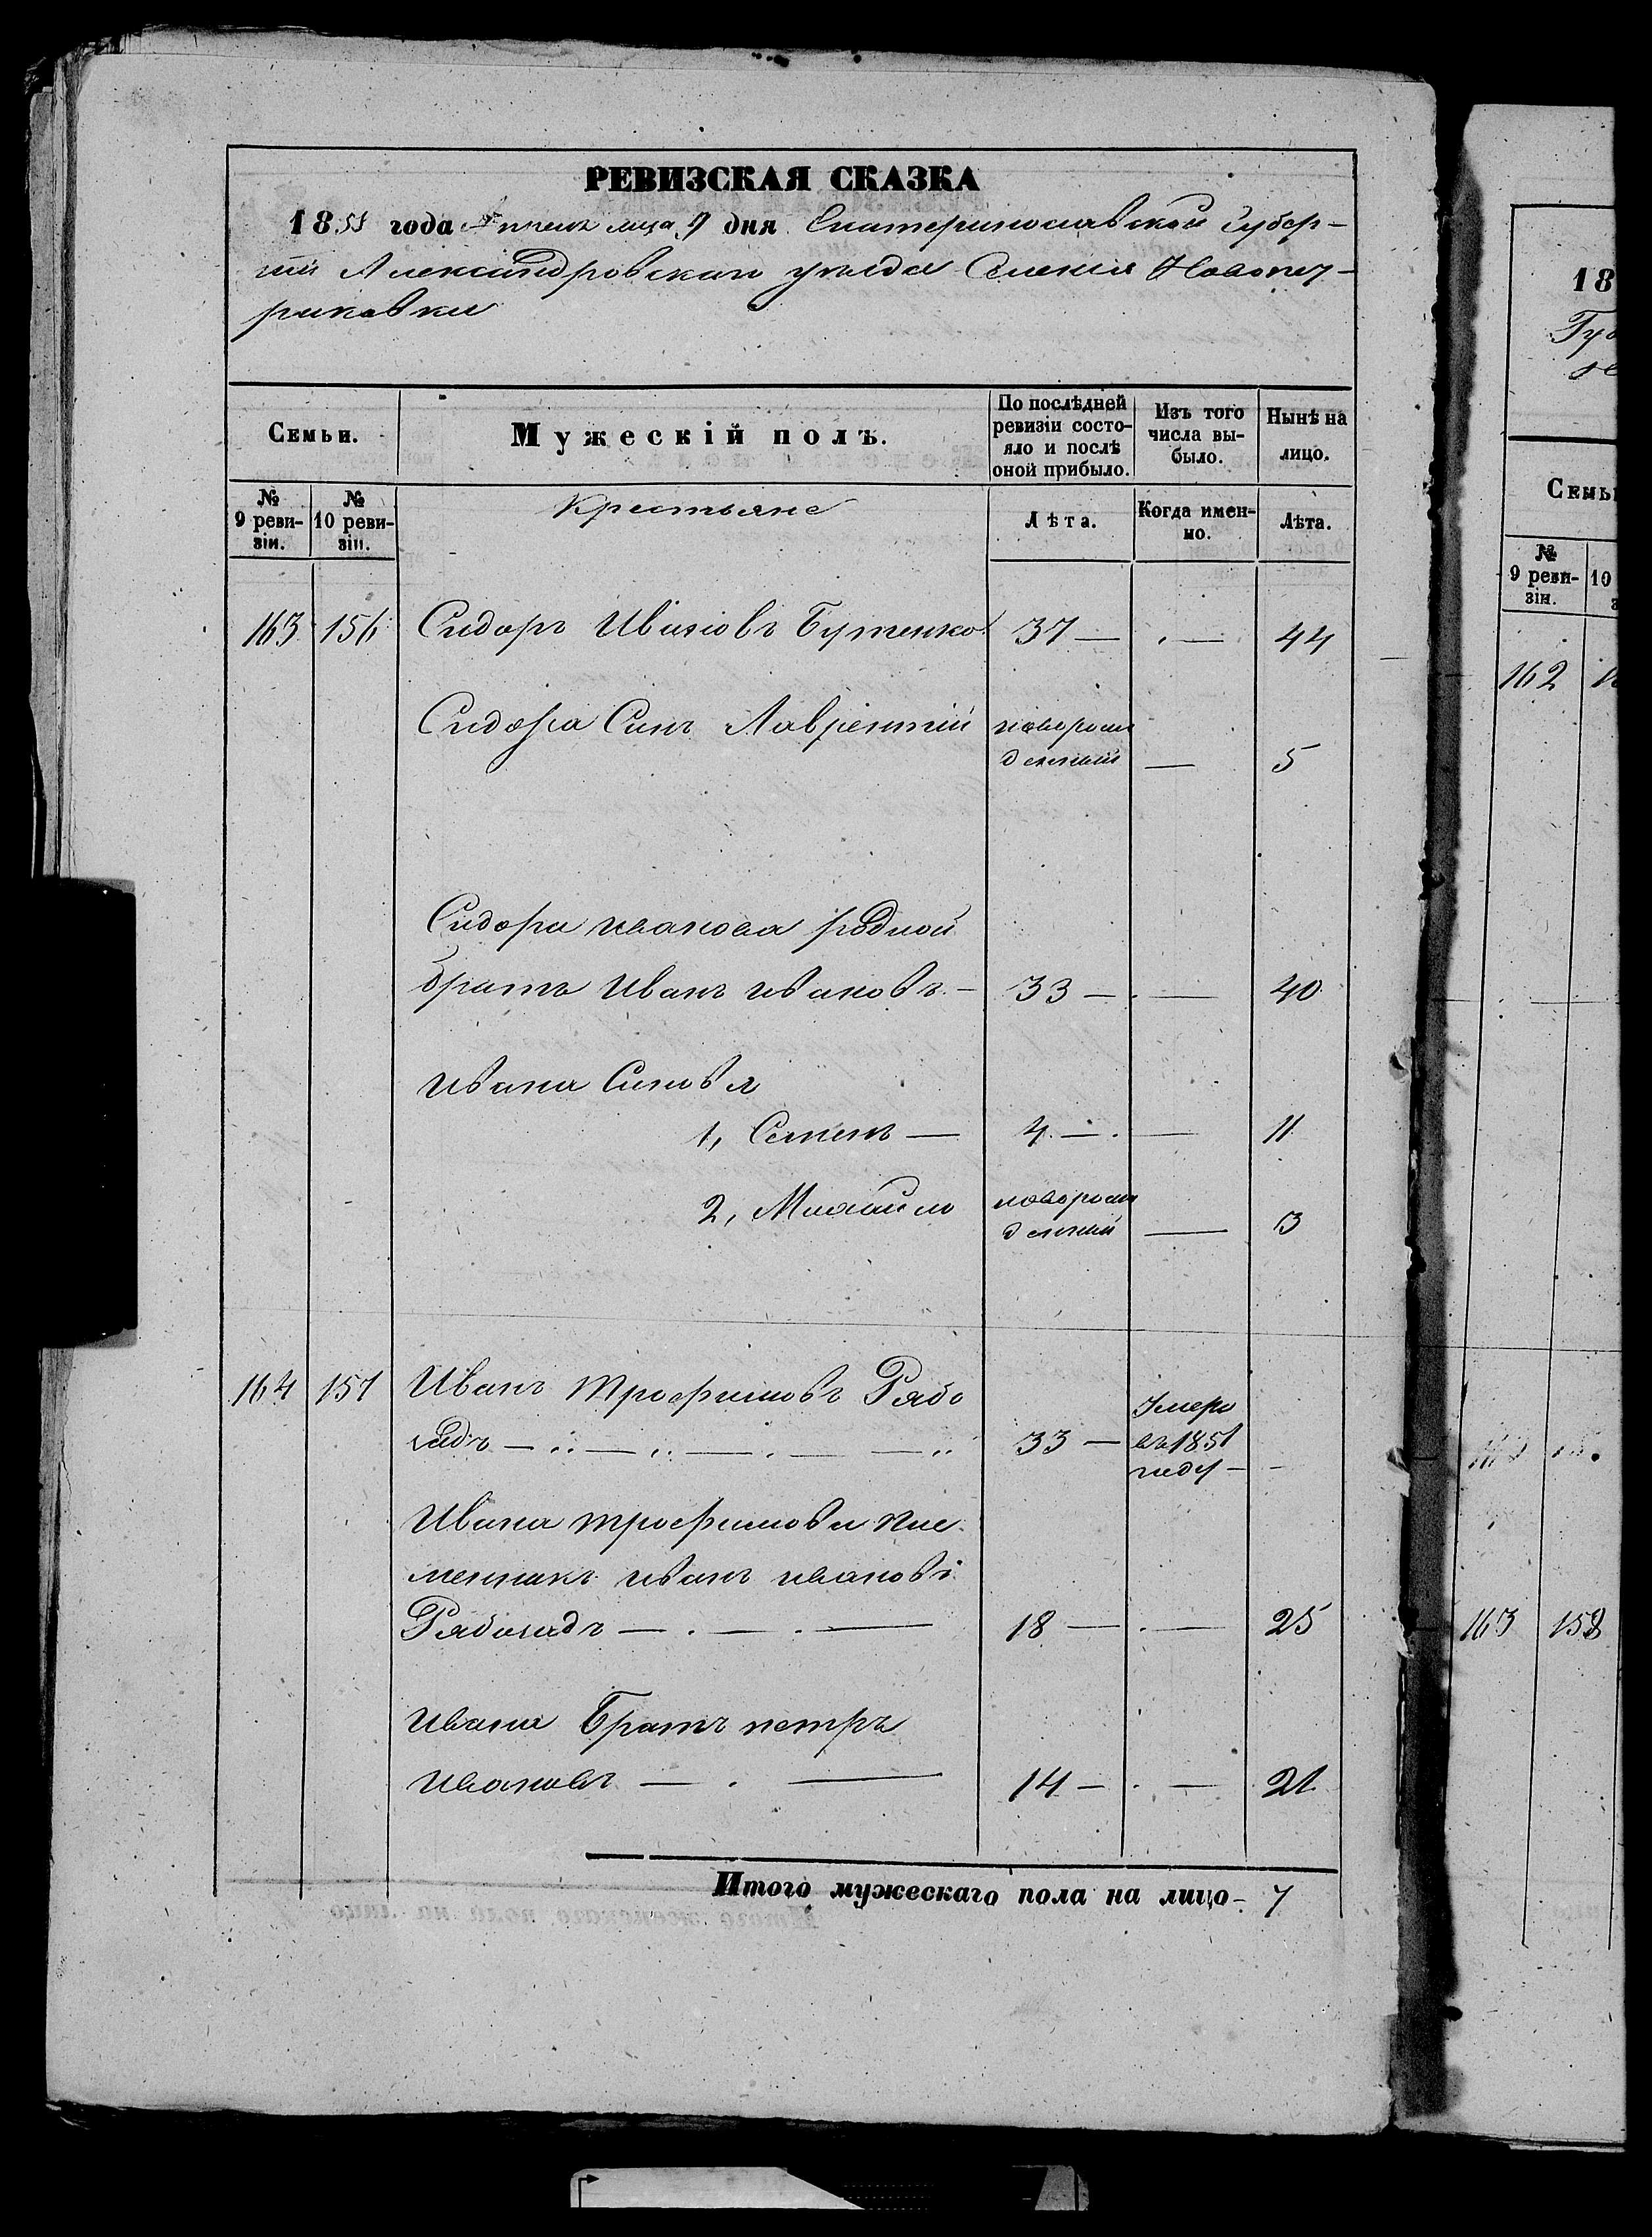 РЕВИЗСКАЯ СКАЗКА
1858 года Апреля мца 9 дня Екатеринославской Губер-
нии Александровскаго уезда Селения Новопет-
риковки
Семьи.
Мужескій полъ.
По послѣдней ревизіи состо-
яло и послѣ оной прибыло.
Изъ того числа вы-
было.
Нынѣ на лицо.
№ 9 реви-
зіи.
№ 10 реви-
зіи.
Крестьяне
Лѣта.
Когда имен-
но.
Лѣта.
163 156 Сидоръ Ивановъ Бутенко 37 — . — 44
Сидора Синъ Лаврентий новорож
денный — 5
Сидора иванова родной
братъ Иванъ ивановъ — 33 — . — 40
ивана Синовя
1, Семенъ — 4 — . — 11
2, Михайло новорож
денный — 3
164 157 Иванъ трофимовъ Рябо
33 — Умеръ
въ 1851
году —
Ивана трофимова пле
менникъ иванъ ивановъ
18 — . — 25
Ивана Братъ петръ
ивановъ — . — 14 — . — 21
Итого мужескаго пола на лицо - 7
18
Семьи
№ 9 реви-
зіи.
10
162
163 158